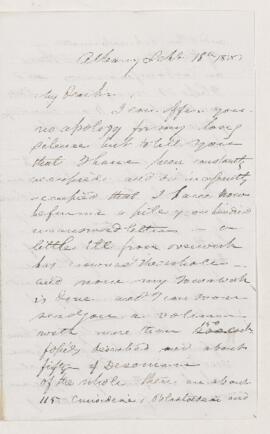 Albany Sept 18th
My Dear Sir,
I can offer you
no apology for my long
silence but to tell you
that I have been constantly
occupied and so incessantly
occupied that I have now
before me a pile of one hundred
unanswered letters — a
little ill from overwork
has crowned the whole —
and now my Iowa work
is done and I can now
send you a volume
with more than 150
fossils described and about
fifty of
of the whole there are about
115 Crinoideae, Blastoideae and